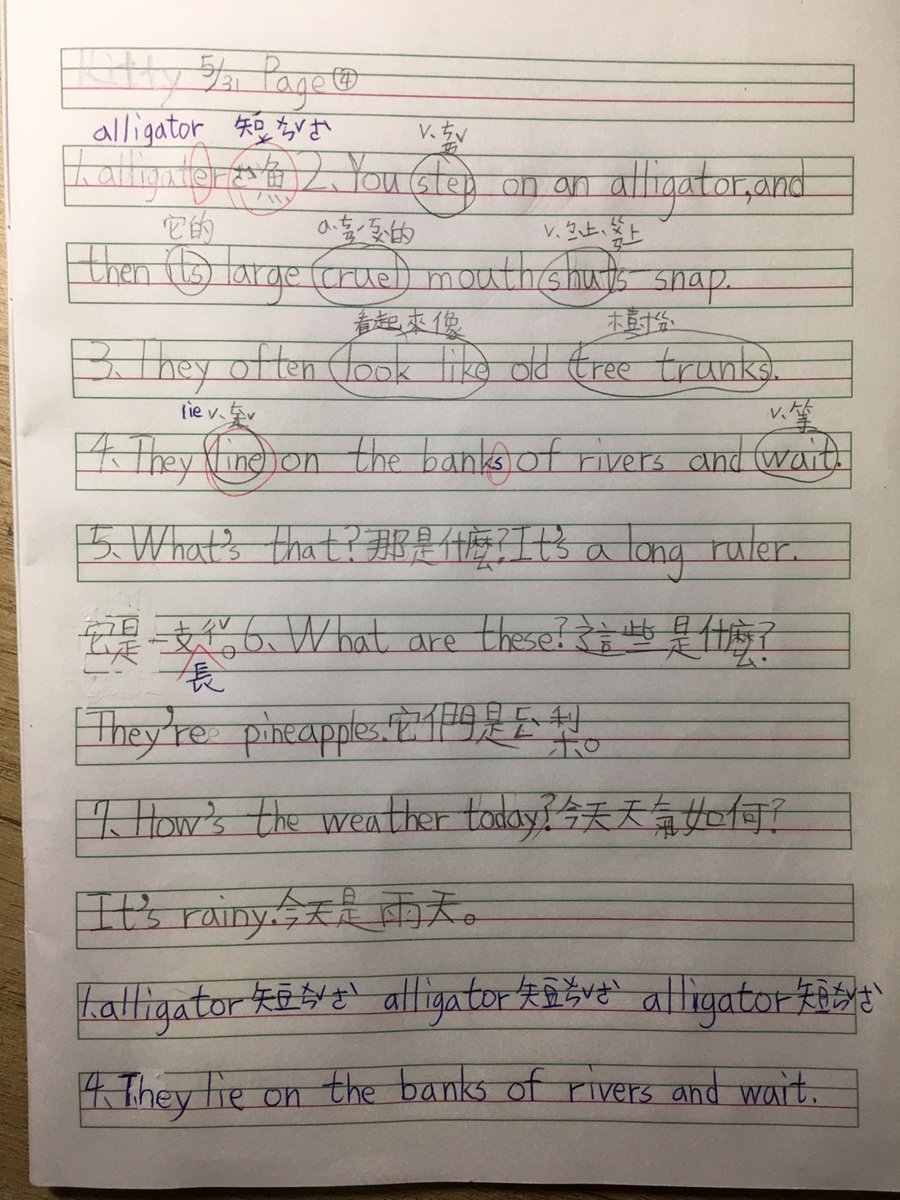 Kitty 5/31 Page ④
alligator 短ㄔㄨˇㄜˋ v.
1.alligater 漁 2.You step on an alligator,and
它的 的 v.
then its large cruel mouth shuts snap.
看起來像 樹
3.They often look like old tree trunks.
lie v. v.等
4.They line on the banks of rivers and wait.
5.What's that?那是什麼?It's a long ruler.
它是一支 。6.What are these?這些是什麼?
長
They're pineapples.它們是 。
7.How's the weather today?今天天氣如何?
It's rainy.今天是雨天。
1.alligator 短 alligator 短 alligator 短
4.They lie on the banks of rivers and wait.